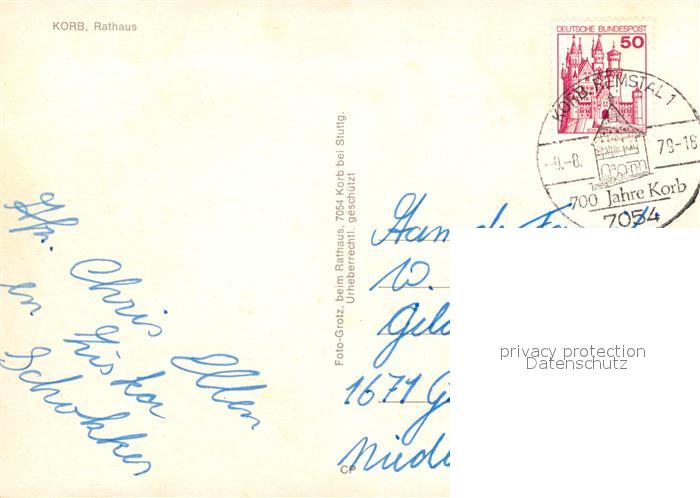 KORB, Rathaus
DEUTSCHE BUNDESPOST
50
KORB, REMSTAL 1
9.-8. 79-18
700 Jahre Korb
7054
Foto-Grotz, beim Rathaus, 7054 Korb bei Stuttg.
Urheberrechtl. geschützt
Chris Ellen
en
Schokker
W.
1671 G
Niede
CP
privacy protection
Datenschutz